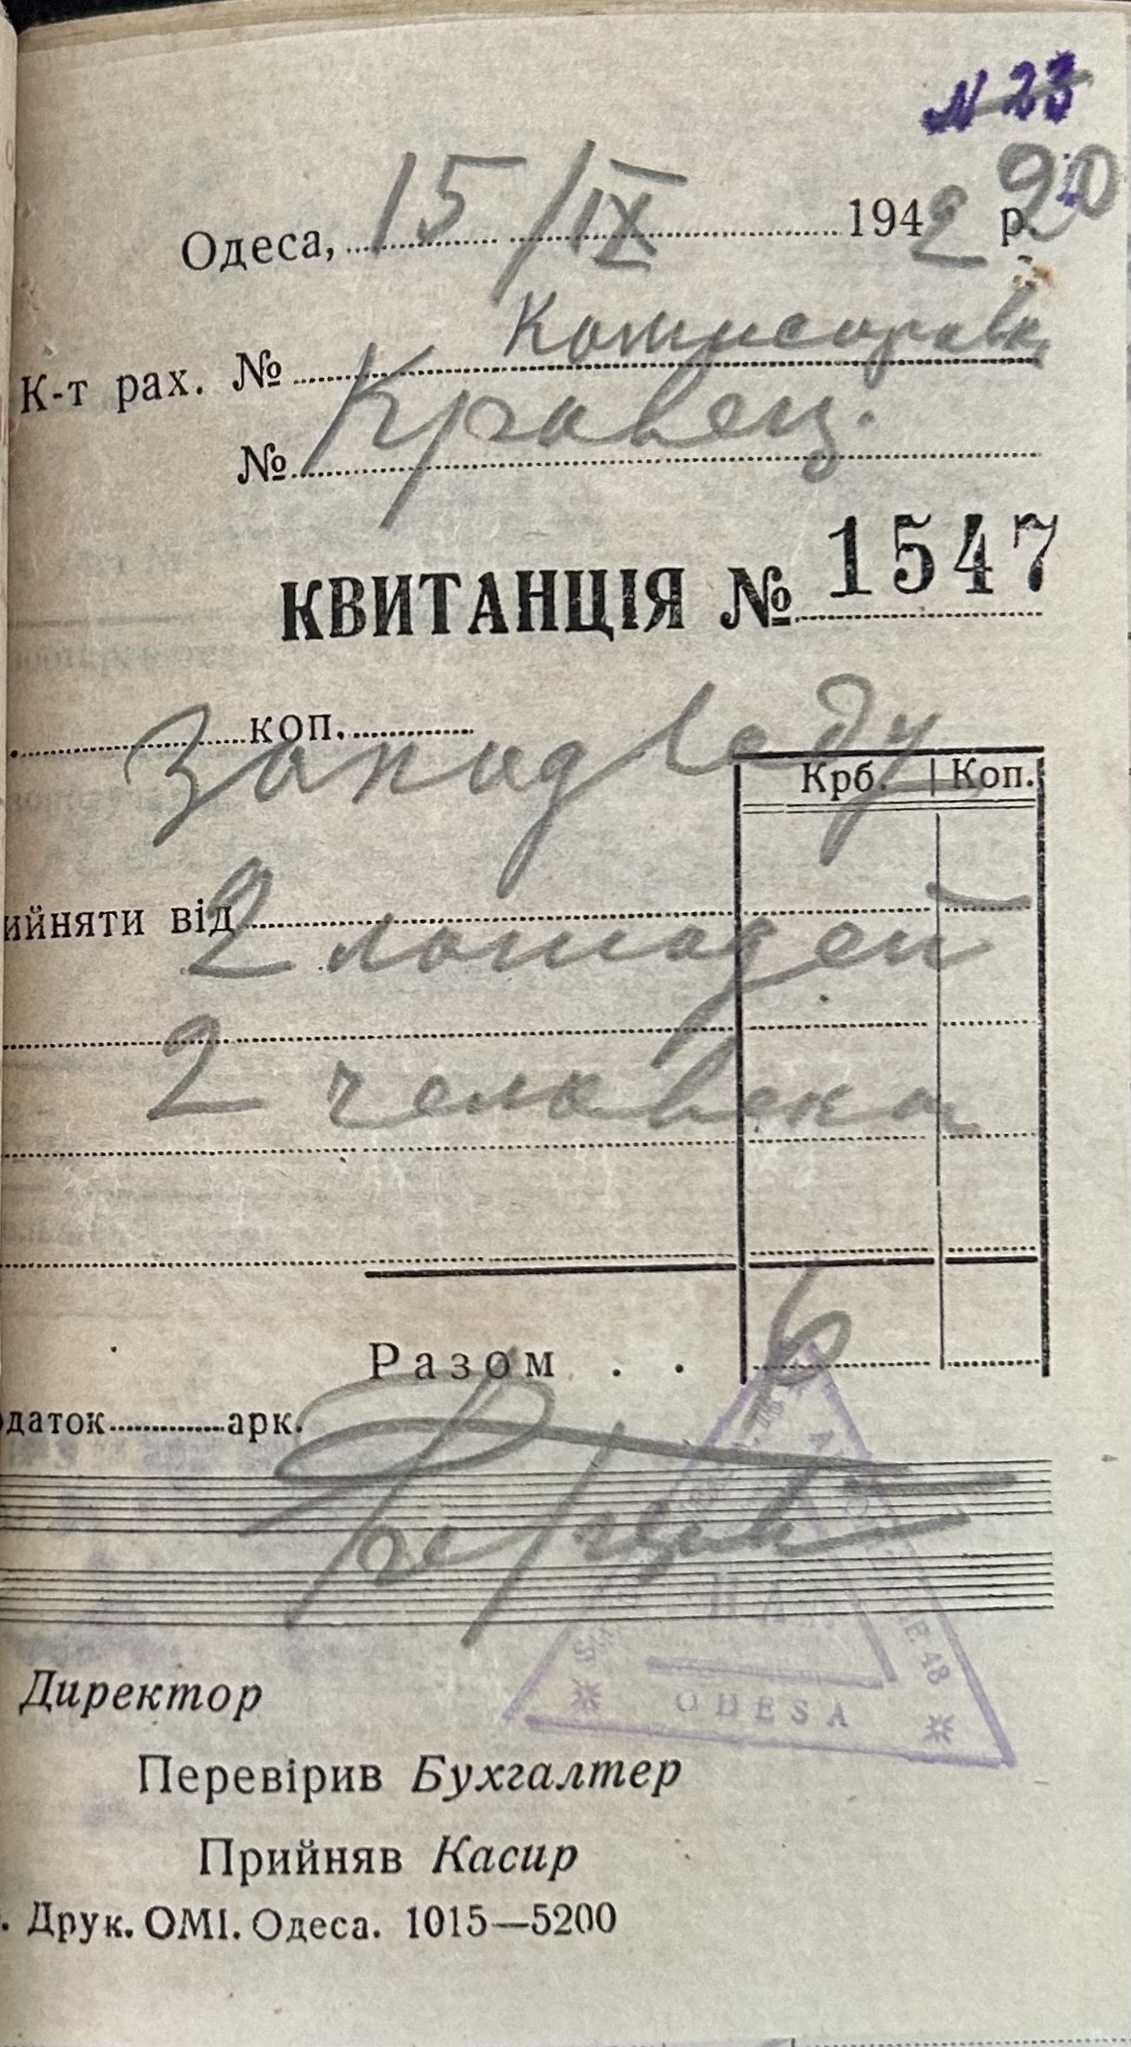 № 23
90
Одеса, 15/IX 1942 р.
К-т рах. №
№ Кравец.
КВИТАНЦІЯ № 1547
коп.
За подводу
Крб. | Коп.
ийняти від
2 лошадей
2 человека
Разом . . 6
одаток арк.
ODESA
Директор
Перевірив Бухгалтер
Прийняв Касир
. Друк. ОМІ. Одеса. 1015—5200